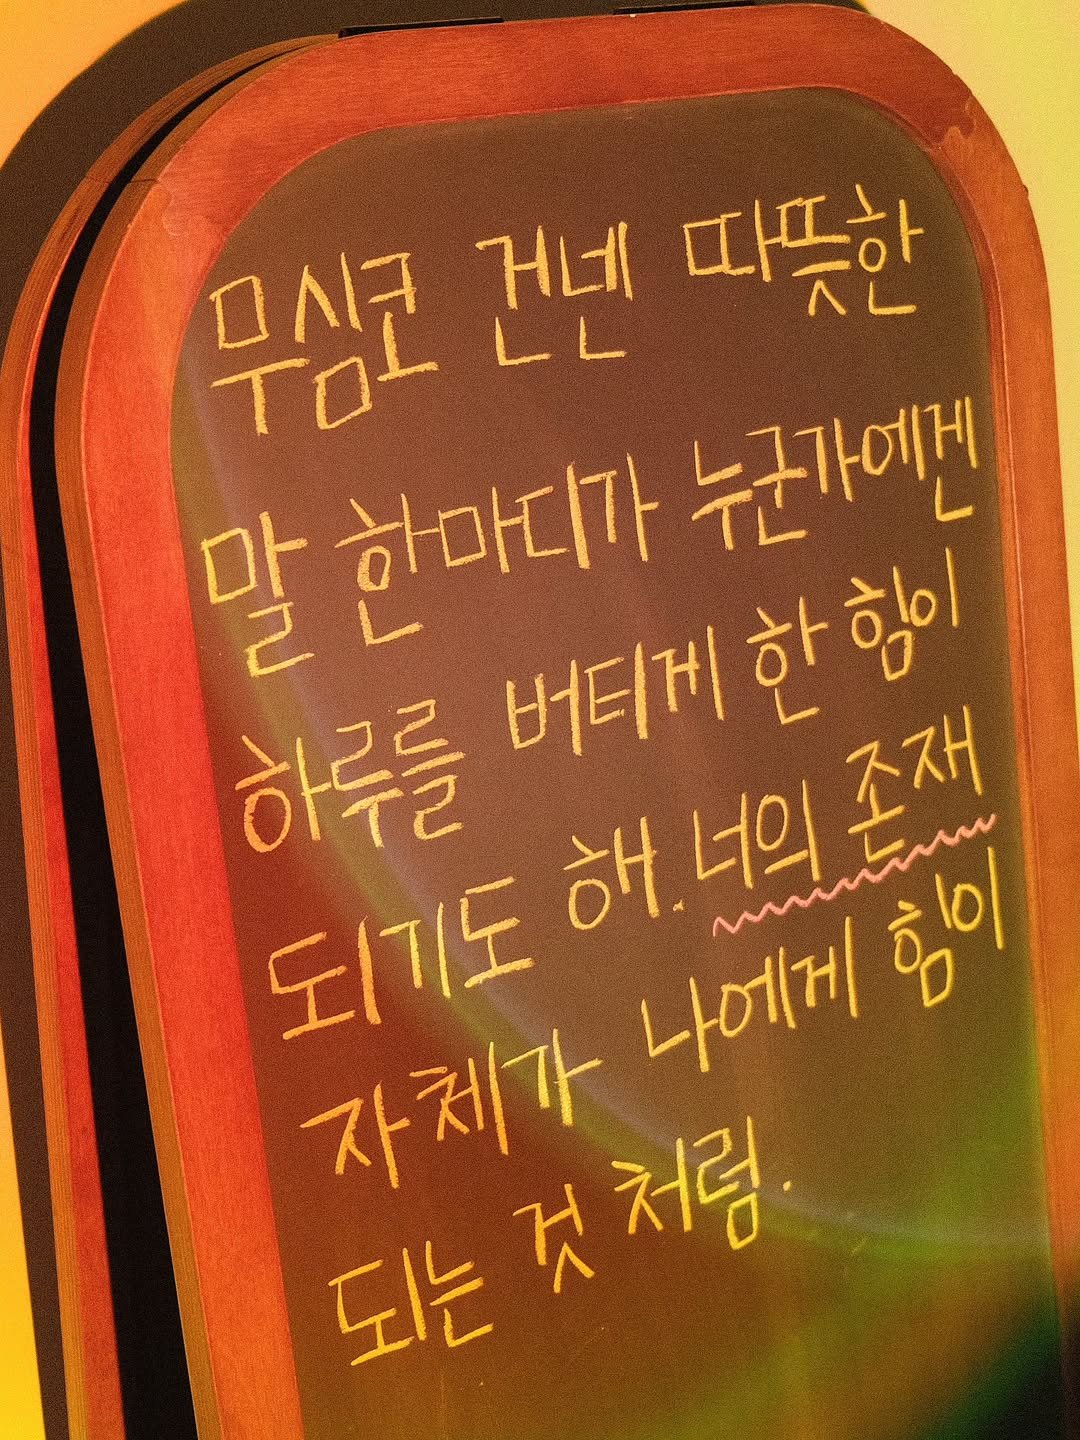 무심코 건넨 따뜻한
말 한마디가 누군가에겐
하루를 버티게 한 힘이
되기도 해. 너의 존재
자체가 나에게 힘이
되는 것 처럼.